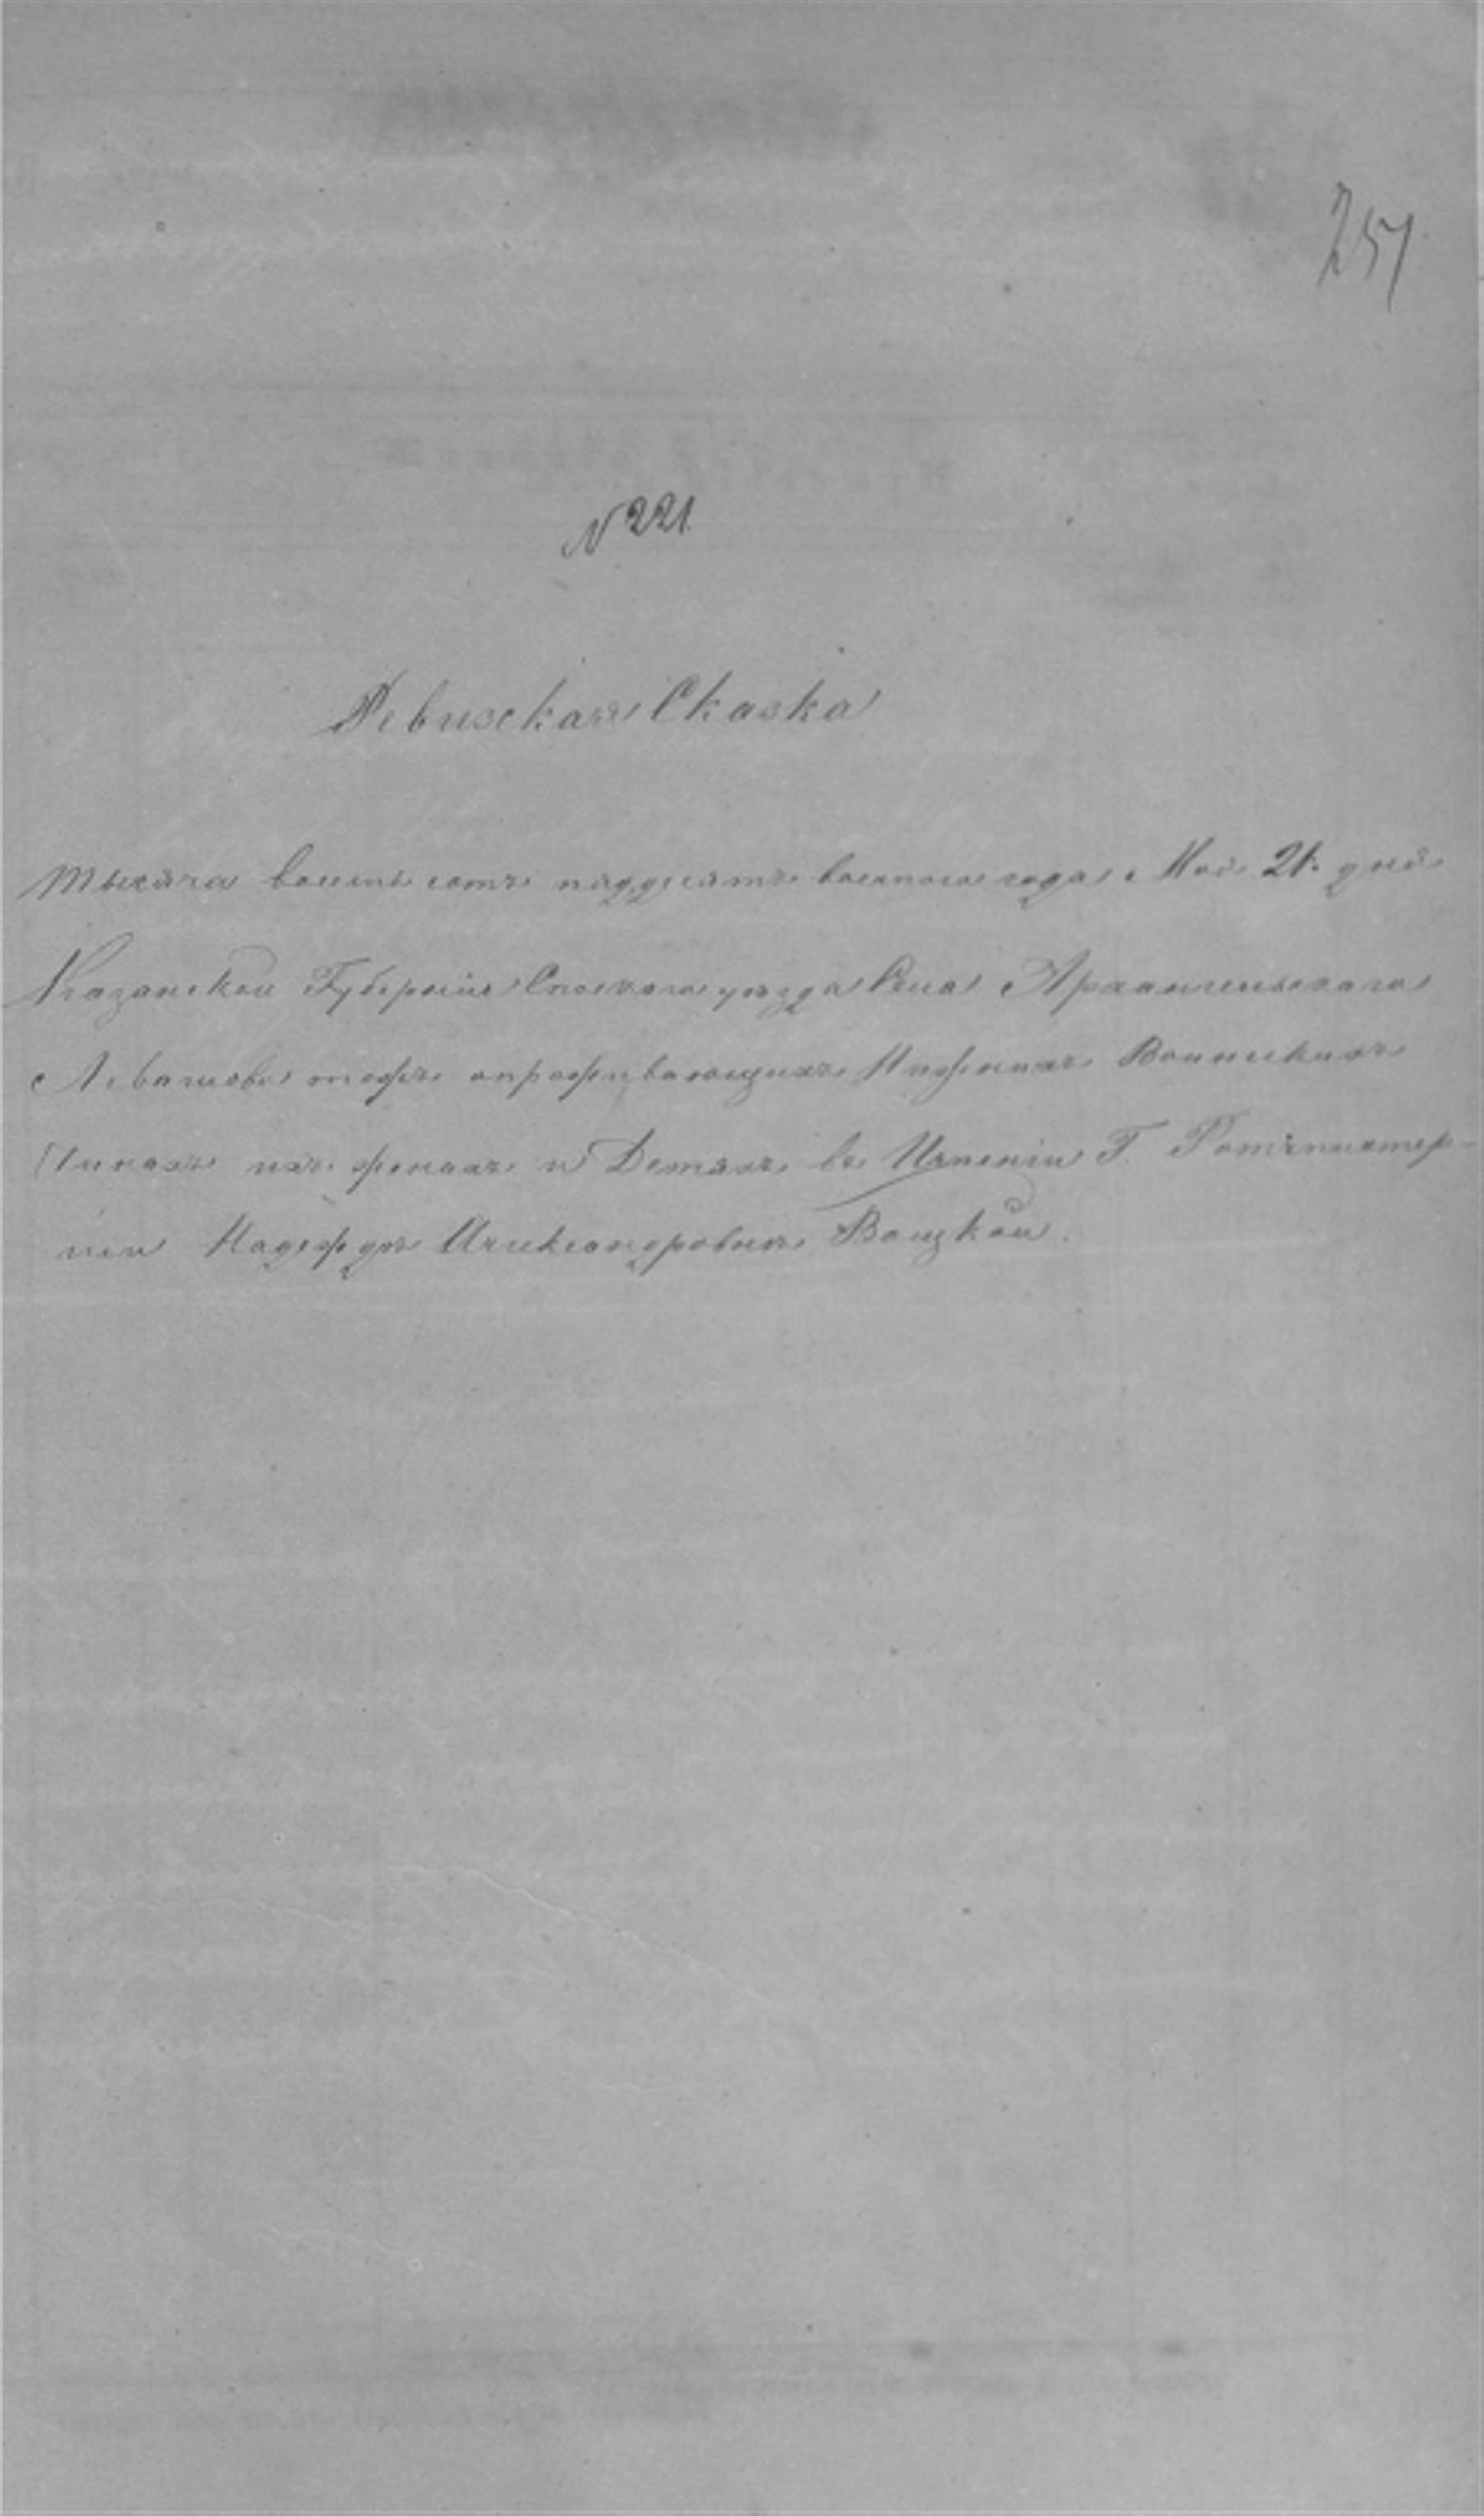 251
N 221
Ревизская Сказка
Тысяча восемь сотъ пяддесятъ восмого года Мая 21. дня
Казанской Губернiи Спаского уезда Села Архангельскаго
Левашово тожъ опроживающихъ Нижнихъ Воинскихъ
Чинахъ ихъ женахъ и Детяхъ въ Имѣнiи Г. Ротмистер-
ши Надеждѣ Александровнѣ Воцкой.